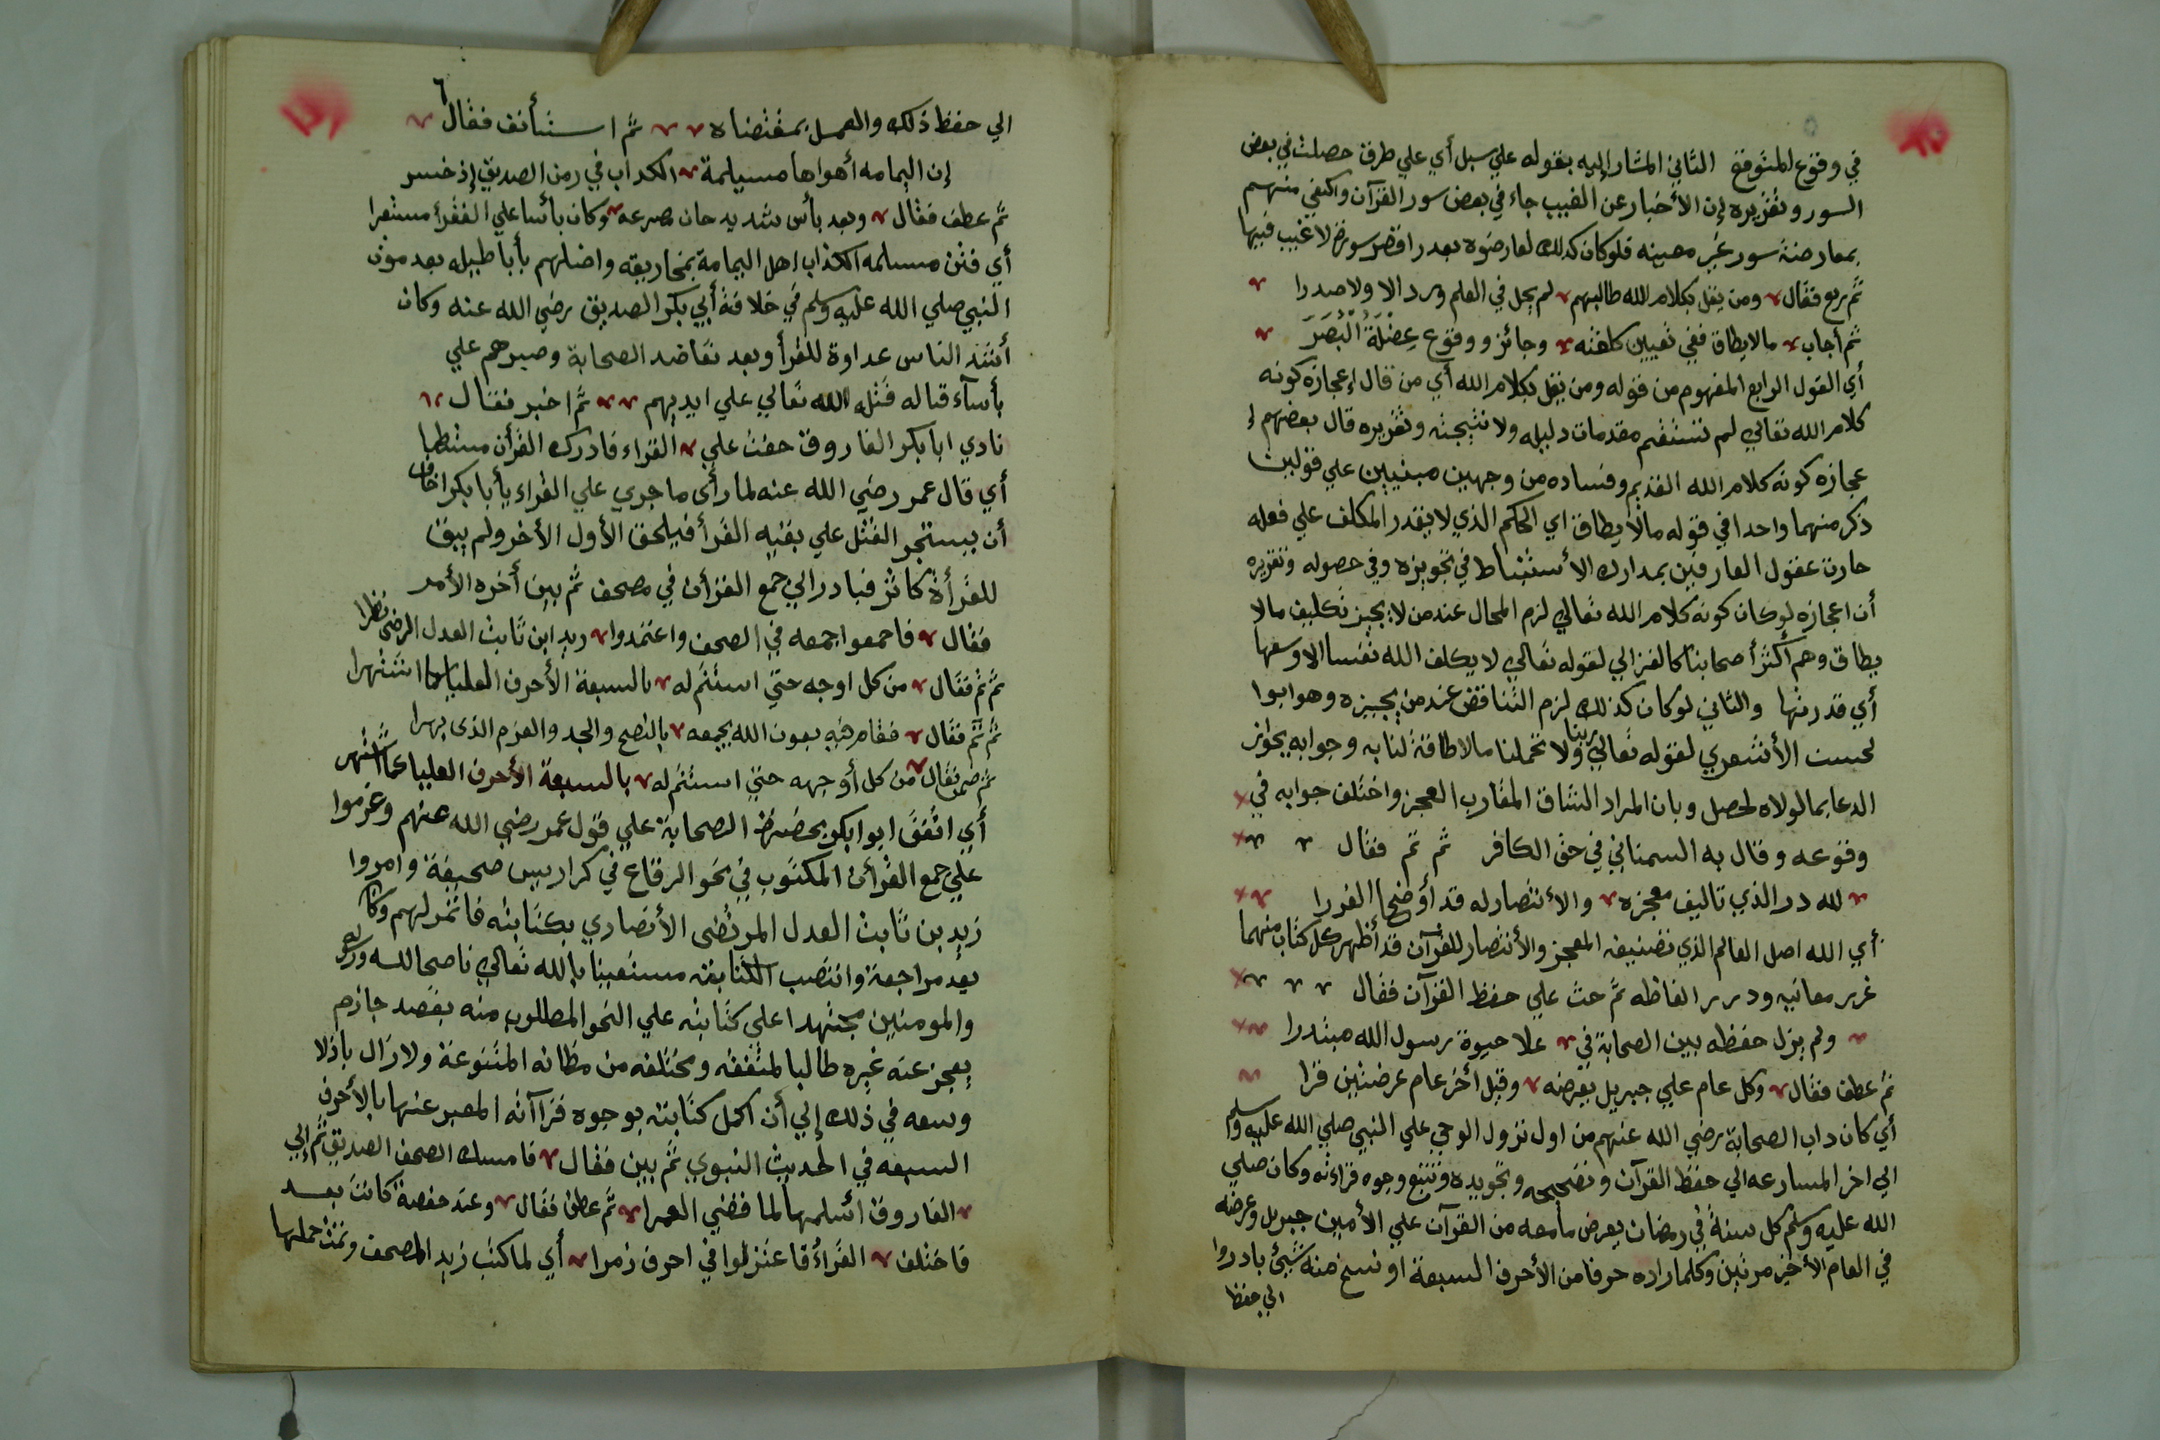 في وقوع المتوقع الثاني المشار إليه بقوله علي سبل أي علي طرق حصلت في بعض
السور وتقريره إن الأخبار عن الغيب جاء في بعض سور القرآن واكتفي منهم
بمعارضة سور غير معينه فلو كان كذلك لعارضوه بعد راقصر سورة لا غيب فيها
ثم ربع فقال ومن يقل بكلام الله طالبهم لم يحل في العلم ورد الا ولا صدرا
ثم أجاب مالا يطاق ففي تعيين كلفته وجائز ووقوع عضلة البصر
أي القول الرابع المفهوم من قوله ومن يقل بكلام الله أي من قال إعجازه كونه
كلام الله تعالي لم تستقم مقدمات دليله ولا نتيجته وتقريره قال بعضهم إ
عجازه كونه كلام الله القديم وفساده من وجهين مبنيين علي قولين
ذكر منهما واحدا في قوله مالا يطاق اي الحكم الذي لا يقدر المكلف علي فعله
حارت عقول العارفين بمدارك الأستنباط في تجويزه وفي حصوله وتقريره
أن اعجازه لو كان كونه كلام الله تعالي لزم المحال عند من لا يجيز تكليف مالا
يطاق وهم أكثر أصحابنا كالغزالي لقوله تعالي لا يكلف الله نفسا الا وسعها
أي قدرتها والثاني لو كان كذلك لزم التناقض عند من يجيزه وهو ابوا
لحسن الأشعري لقوله تعالي ربنا ولا تحملنا مالا طاقة لنا به وجوابه بجواز
الدعا بما لولاه لحصل وبان المراد الشاق المقارب العجز واختلف جوابه في
وقوعه وقال به السمناني في حق الكافر ثم تم فقال
لله در الذي تاليف معجزه والأنتصار له قد أوضحا الغررا
أي الله اصل العالم الذي تصنيفه المعجز والأنتصار للقرآن قد أظهر كل كتاب منهما
غرر معانيه ودرر الفاظه ثم حث علي حفظ القرآن فقال
ولم يزل حفظه بين الصحابة في علا حيوة رسول الله مبتدرا
ثم عطف فقال وكل عام علي جبريل يعرضه وقيل أخر عام عرضتين قرا
أي كان داب الصحابة رضي الله عنهم من اول نزول الوحي علي النبي صلي الله عليه وسلم
الي اخر المسارعه الي حفظ القرآن وتصحيحه وتجويده وتتبع وجوه قراءته وكان صلي
الله عليه وسلم كل سنة في رمضان يعرض ما معه من القرآن علي الأمين جبريل وعرضه
في العام الأخير مرتين وكلما زاده حرفا من الأحرف السبعة او نسخ منه شئ بادروا
الي حفظ
٦
الي حفظ ذلك والعمل بمقتضاه ثم استأنف فقال
إن اليمامه أهواها مسيلمة الكذاب في زمن الصديق إذ خسر
ثم عطف فقال وبعد بأس شديد حان مصرعه وكان بأسا علي القرأ مستعرا
أي فتن مسيلمه الكذاب اهل اليمامة بمخاريقه واضلهم بأباطيله بعد موت
النبي صلي الله عليه وسلم في خلافة أبي بكر الصديق رضي الله عنه وكان
أشد الناس عداوة للقرأ وبعد تعاضد الصحابة وصبرهم علي
بأسآء قتاله قتله الله تعالي علي ايديهم ثم اخبر فقال
نادي ابا بكر الفاروق خفت علي القراء فادرك القرأن مستطرا
أي قال عمر رضي الله عنه لما رأى ما جري علي القراء يأبا بكر اخاف
أن يستحر القتل علي بقيه القرأ فيلحق الأول الأخر ولم يبق
للقرأة كاثر فبادر الي جمع القرأن في مصحف ثم بين أخره الأمر
فقال فاجمعوا جمعه في الصحف واعتمدوا زيد ابن ثابت العدل الرضي نظرا
ثم تم فقال من كل اوجه حتي استتم له بالسبعة الأحرف العليا كما اشتهرا
ثم تمم فقال فقام فيه بعون الله يجمعه بالنصح والجد والعزم الذي بهرا
ثم ضمن فقال من كل أوجهه حتي استتم له بالسبعة الأحرف العليا كما اشتهر
أي اتفق ابوا بكر بحضرة الصحابة علي قول عمر رضي الله عنهم وعزموا
علي جمع القرأن المكتوب في نحو الرقاع في كراريس صحيفة وامروا
زيد بن ثابت العدل المرتضى الأنصاري بكتابته فائتمر لهم وكان
بعد مراجعة وانتصب الكتابته مستعينا بالله تعالي ناصحا لله ورسوله
والمومنين مجتهدا علي كتابته علي النحو المطلوب منه بقصد جازم
يعجز عنه غيره طالبا لمتفقه ومختلفه من مظانه المتنوعة ولا زال باذلا
وسعه في ذلك إلي أن اكمل كتابته بوجوه قراآته المعبر عنها بالأحرف
السبعه في الحديث النبوي ثم بين فقال فامسك الصحف الصديق ثم إلي
الفاروق اسلمها لما قضي العمرا ثم عطف فقال وعند حفصة كانت بعد
فاختلف القراء فاعتزلوا في احرف زمرا أي لما كتب زيد المصحف وتمت حملها